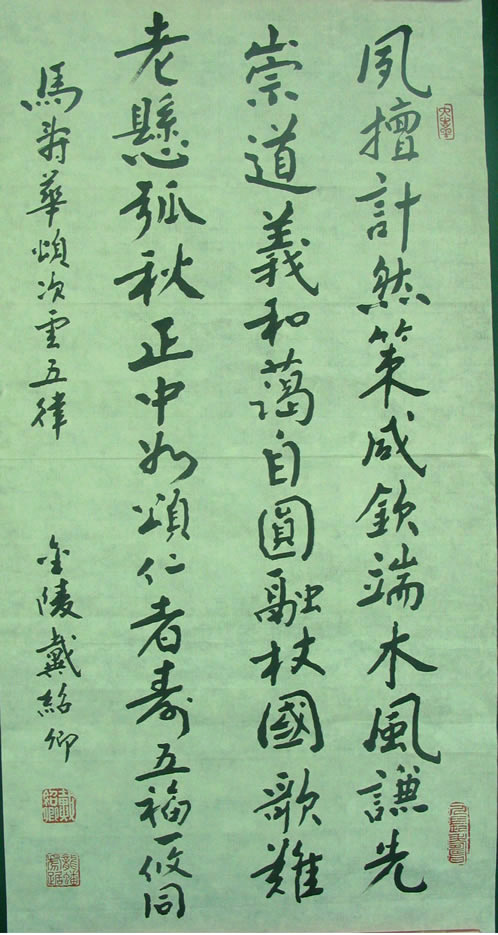 夙擅計然策咸欽端木風謙先
崇道義和藹自圓融杖國歌難
老懸弧秋正中如頌仁者壽五福一攸同
馬壽華頌次雲五律
金陵戴紹卿
戴紹卿